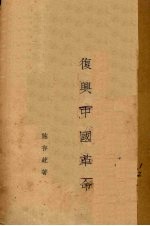 復興中國革命
陳存統著